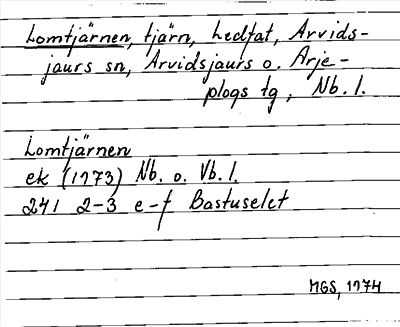 Lomtjärnen, tjärn, Ledfat, Arvids-
jaurs sn, Arvidsjaurs o. Arje-
plogs tg, Nb. l.
Lomtjärnen
ek (1973) Nb. o. Vb. l.
241 2-3 e-f Bastuselet
MGS, 1974